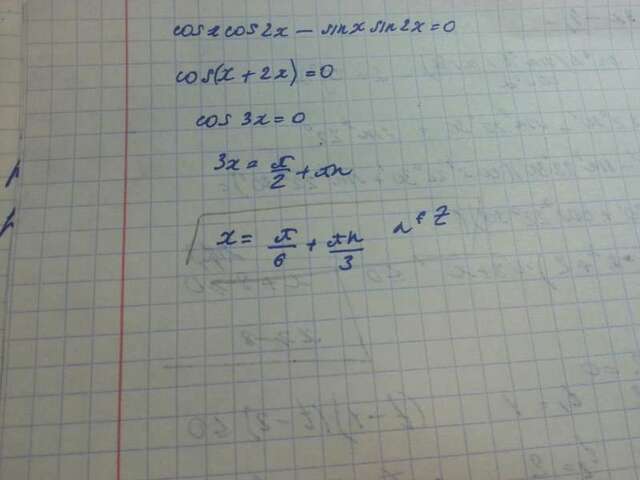 cosx cos2x − sinx sin2x=0
cos(x+2x)=0
cos 3x=0
3x= π/2 + πn
x= π/6 + πn/3 n∈Z